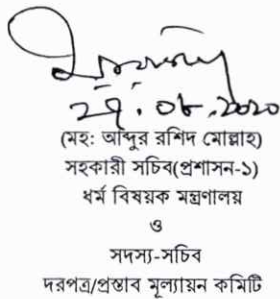 (মহ: আব্দুর রশিদ মোল্লাহ)
সহকারী সচিব(প্রশাসন-১)
ধর্ম বিষয়ক মন্ত্রণালয়
ও
সদস্য-সচিব
দরপত্র/প্রস্তাব মূল্যায়ন কমিটি